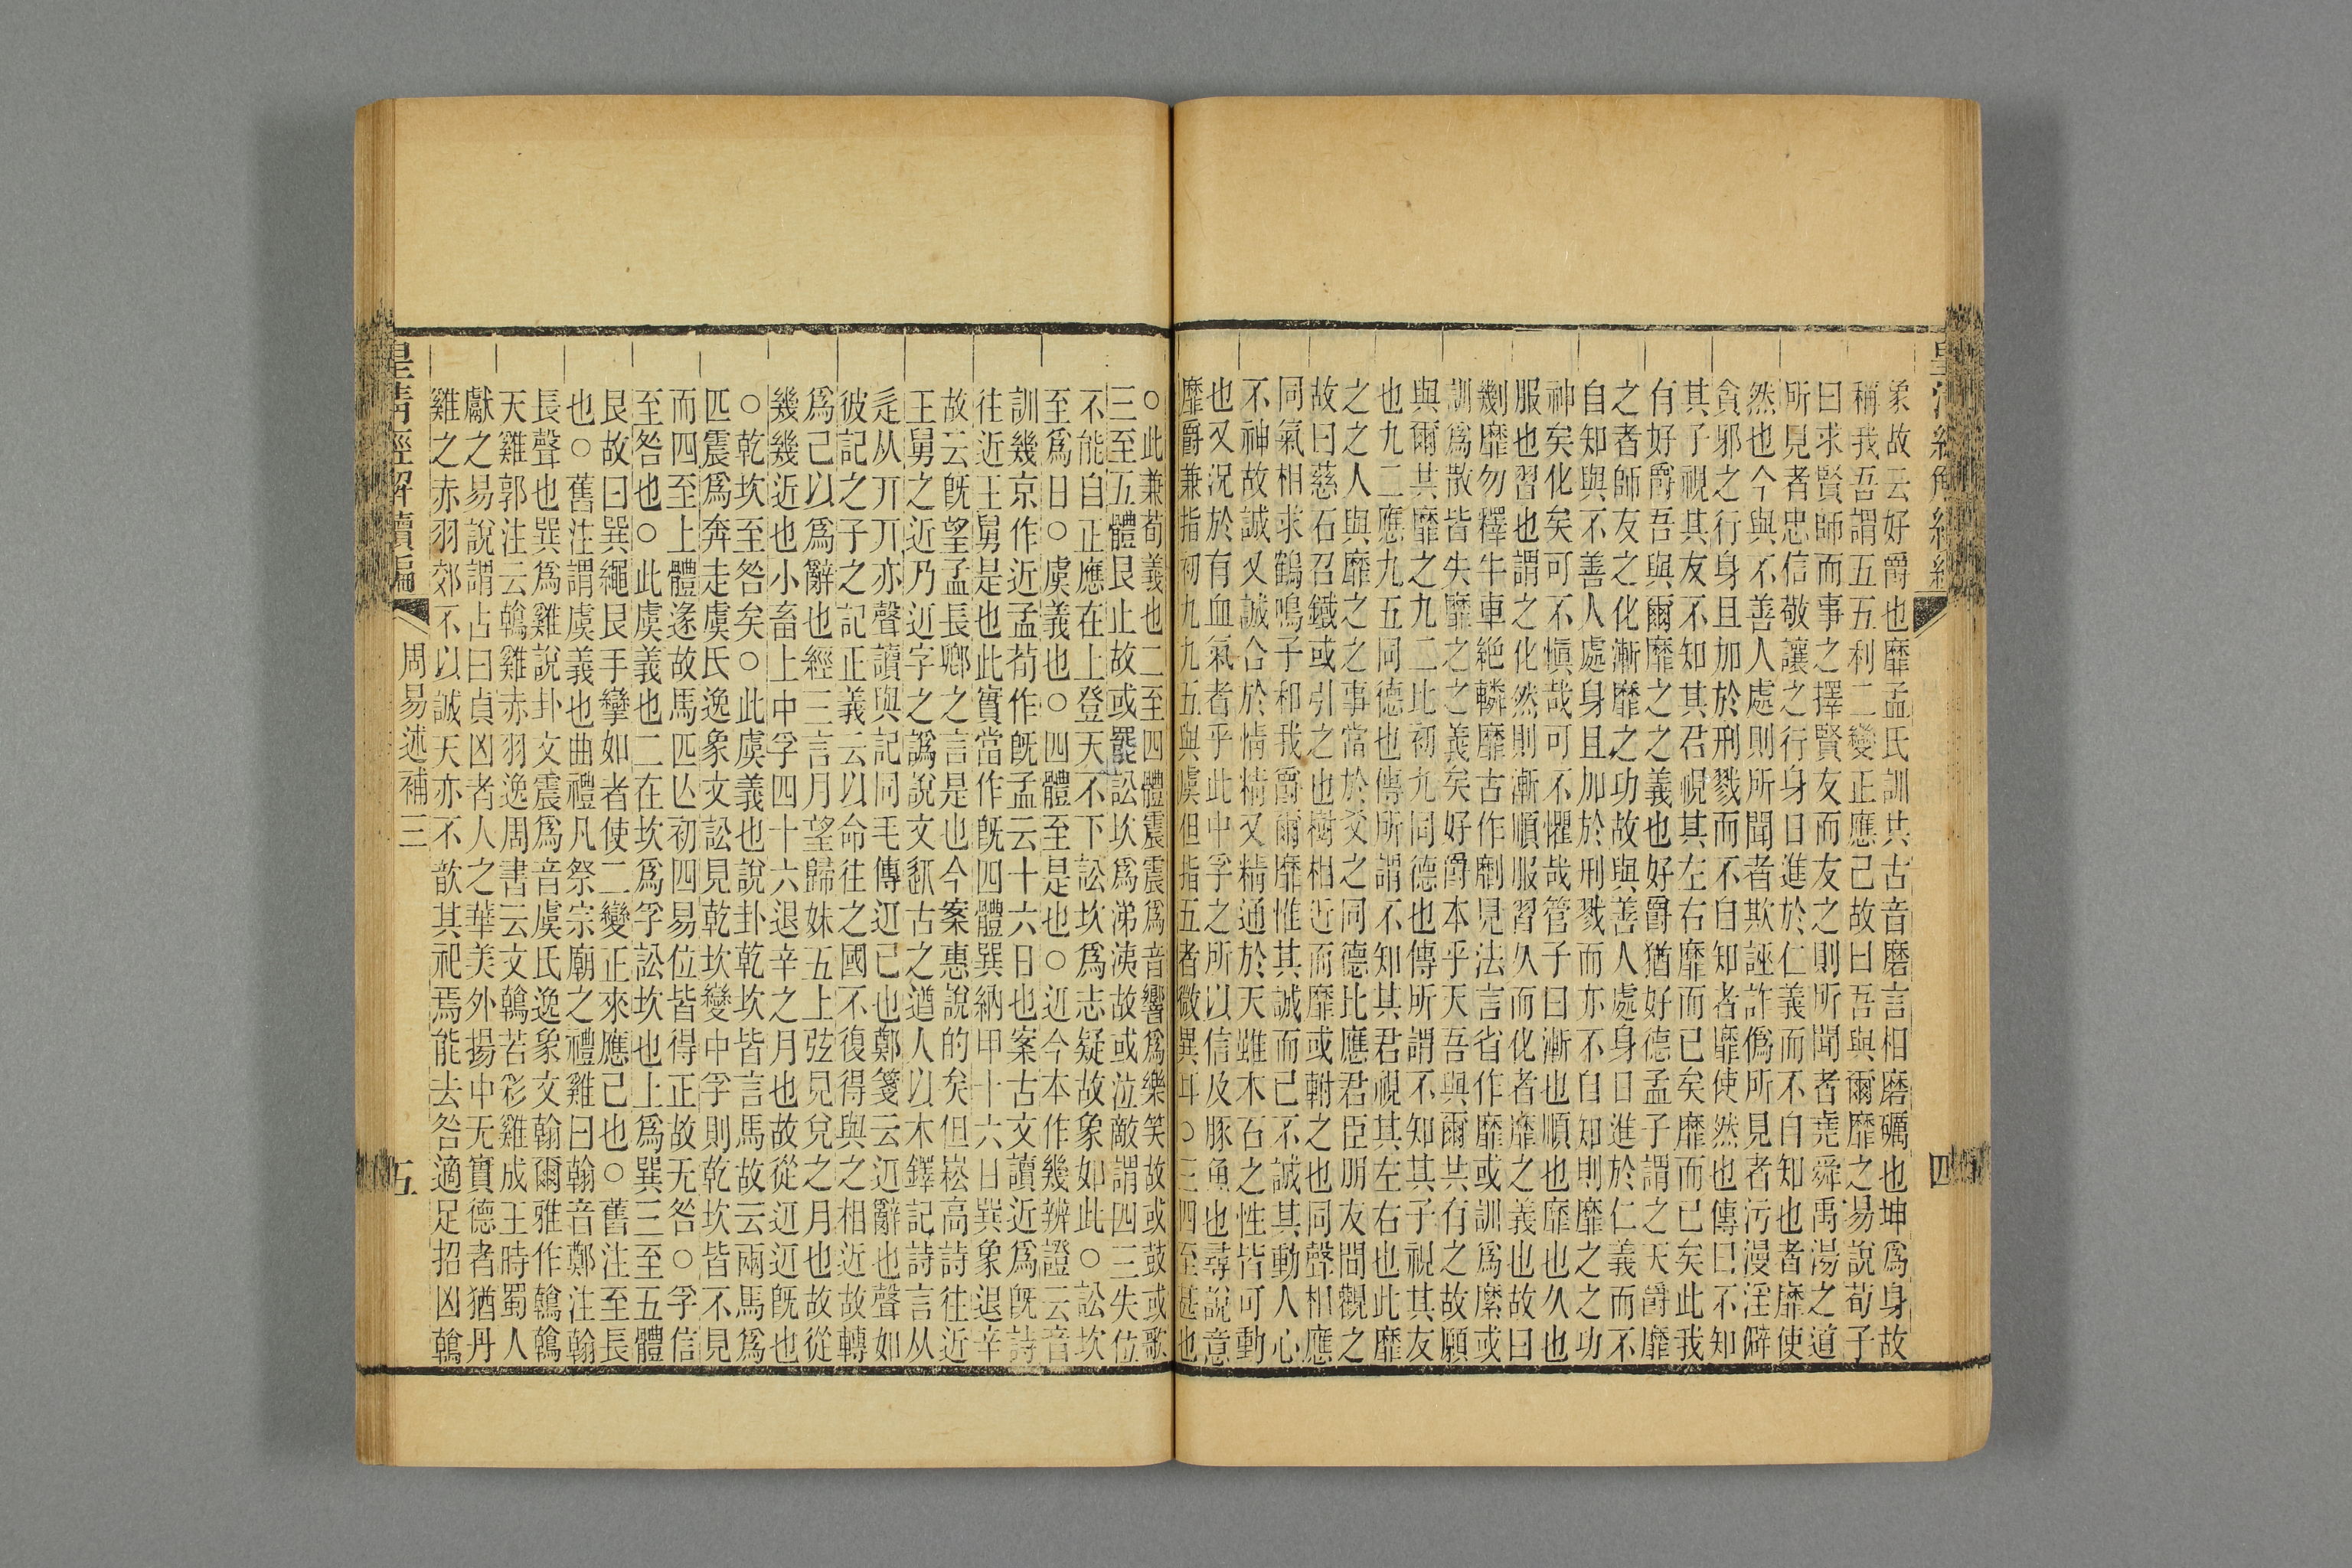 象故云好爵也靡孟氏訓共古音磨言相磨礪也坤爲身故
稱我吾謂五五利二變正應己故曰吾與爾靡之易說荀子
曰求賢師而事之擇賢友而友之則所聞者堯舜禹湯之道
所見者忠信敬讓之行身日進於仁義而不自知也者靡使
然也今與不善人處則所聞者欺誣詐僞所見者污漫淫僻
貪邪之行身且加於刑戮而不自知者靡使然也傳曰不知
其子視其友不知其君視其左右靡而已矣靡而已矣此我
有好爵吾與爾靡之之義也好爵猶好德孟子謂之天爵靡
之者師友之化漸靡之功故與善人處身日進於仁義而不
自知與不善人處身且加於刑戮而亦不自知則靡之之功
神矣化矣可不愼哉可不懼哉管子曰漸也順也靡也久也
服也習也謂之化然則漸順服習久而化者靡之義也故曰
劖靡勿釋牛車絶轔靡古作劘見法言省作靡或訓爲縻或
訓爲散皆失靡之之義矣好爵本乎天吾與爾共有之故願
與爾其靡之九二比初九同德也傳所謂不知其子視其友
也九二應九五同德也傳所謂不知其君視其左右也此靡
之之人與靡之之事當於爻之同德比應君臣朋友間觀之
故曰慈石召鐵或引之也樹相近而靡或軵之也同聲相應
同氣相求鶴鳴子和我爵爾靡惟其誠而已不誠其動人心
不神故誠又誠合於情精又精通於天雖木石之性皆可動
也又況於有血氣者乎此中孚之所以信及豚魚也尋說意
靡爵兼指初九九五與虞但指五者微異耳○三四至甚也
○此兼荀義也二至四體震震爲音響爲樂笑故或鼓或歌
三至五體艮止故或罷訟坎爲涕洟故或泣敵謂四三失位
不能自正應在上登天不下訟坎爲志疑故象如此○訟坎
至爲日○虞義也○四體至是也○近今本作幾辨證云音
訓幾京作近孟荀作旣孟云十六日也案古文讀近爲旣詩
往近王舅是也此實當作旣四體巽納甲十六日巽象退辛
故云旣望孟長鄉之言是也今案惠說的矣但崧高詩往近
王舅之近乃䢋字之譌說文䢋古之遒人以木鐸記詩言从
辵从丌丌亦聲讀與記同毛傳䢋已也鄭箋云䢋辭也聲如
彼記之子之記正義云以命往之國不復得與之相近故轉
爲己以爲辭也經三言月望歸妹五上弦見兌之月也故從
幾幾近也小畜上中孚四十六退辛之月也故從䢋䢋旣也
○乾坎至咎矣○此虞義也說卦乾坎皆言馬故云兩馬爲
匹震爲奔走虞氏逸象文訟見乾坎變中孚則乾坎皆不見
而四至上體遂故馬匹亾初四易位皆得正故无咎○孚信
至咎也○此虞義也二在坎爲孚訟坎也上爲巽三至五體
艮故曰巽繩艮手攣如者使二變正來應己也○舊注至長
也○舊注謂虞義也曲禮凡祭宗廟之禮雞曰翰音鄭注翰
長聲也巽爲雞說卦文震爲音虞氏逸象文翰爾雅作鶾鶾
天雞郭注云鶾雞赤羽逸周書云文鶾若彩雞成王時蜀人
獻之易說謂占曰貞凶者人之華美外揚中无實德者猶丹
雞之赤羽郊不以誠天亦不歆其祀焉能去咎適足招凶鶾
皇淸經解續編
周易述補三
五
四